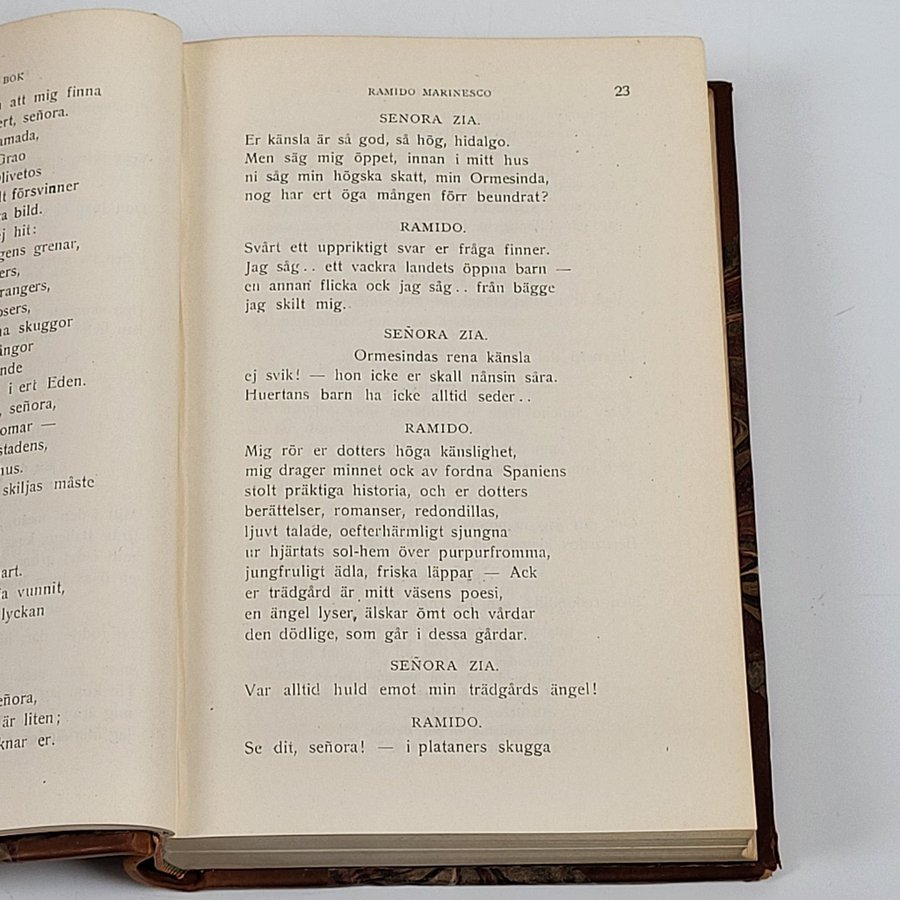 BOK
att mig finna
ert, señora.
amada,
Grao
Olivetos
lt försvinner
a bild.
ej hit:
gens grenar,
ers,
rangers,
osers,
na skuggor
ångor
nde
i ert Eden.
, señora,
omar —
stadens,
hus.
skiljas måste
art.
a vunnit,
lyckan
eñora,
är liten;
knar er.
RAMIDO MARINESCO 23
SENORA ZIA.
Er känsla är så god, så hög, hidalgo.
Men säg mig öppet, innan i mitt hus
ni såg min högska skatt, min Ormesinda,
nog har ert öga mången förr beundrat?
RAMIDO.
Svårt ett uppriktigt svar er fråga finner.
Jag såg.. ett vackra landets öppna barn —
en annan flicka ock jag såg.. från bägge
jag skilt mig.
SEÑORA ZIA.
Ormesindas rena känsla
ej svik! — hon icke er skall nånsin såra.
Huertans barn ha icke alltid seder..
RAMIDO.
Mig rör er dotters höga känslighet,
mig drager minnet ock av fordna Spaniens
stolt präktiga historia, och er dotters
berättelser, romanser, redondillas,
ljuvt talade, oefterhärmligt sjungna
ur hjärtats sol-hem över purpurfromma,
jungfruligt ädla, friska läppar — Ack
er trädgård är mitt väsens poesi,
en ängel lyser, älskar ömt och vårdar
den dödlige, som går i dessa gårdar.
SEÑORA ZIA.
Var alltid huld emot min trädgårds ängel!
RAMIDO.
Se dit, señora! — i plataners skugga